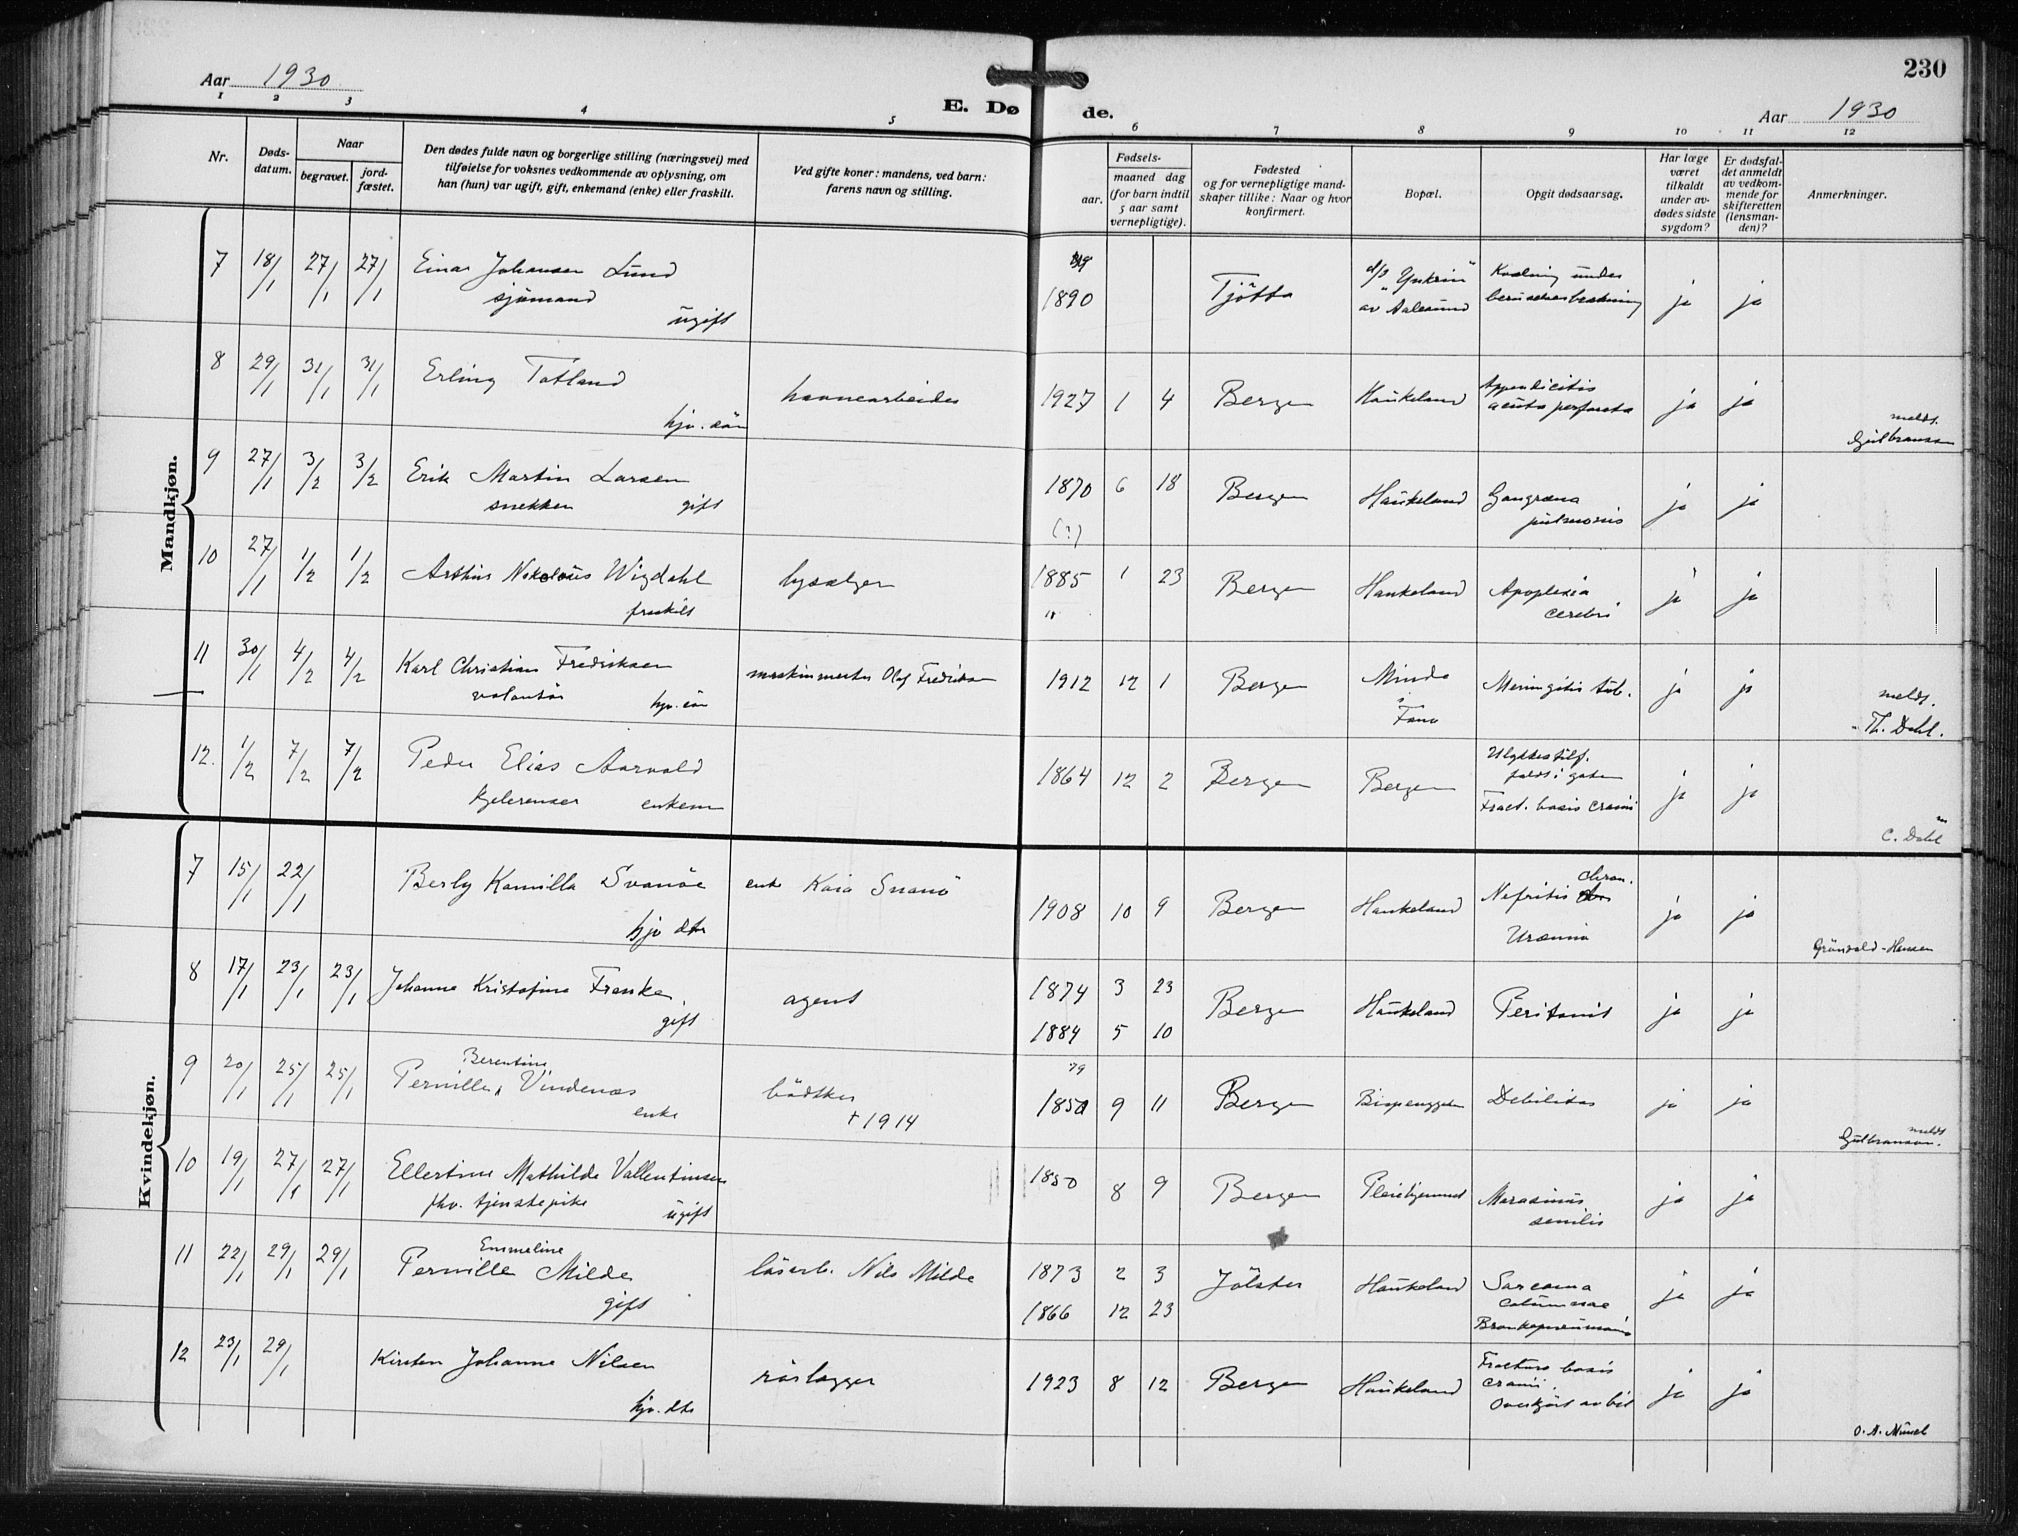 Aar 1930
E. Døde.
230
Aar 1930
1 2 3 4 5 6 7 8 9 10 11 12
Nr.
Dødsdatum.
Naar
begravet.
jordfæstet.
Den dødes fulde navn og borgerlige stilling (næringsvei) med
tilføielse for voksnes vedkommende av oplysning, om
han (hun) var ugift, gift, enkemand (enke) eller fraskilt.
Ved gifte koner: mandens, ved barn:
farens navn og stilling.
Fødsels-
aar.
maaned dag
(for barn indtil
5 aar samt
vernepligtige).
Fødested
og for vernepligtige mand-
skaper tillike: Naar og hvor
konfirmert.
Bopæl.
Opgit dødsaarsag.
Har læge
været
tilkaldt
under av-
dødes sidste
sygdom?
Er dødsfal-
det anmeldt
av vedkom-
mende for
skifteretten
(lensman-
den)?
Anmerkninger.
Mandkjøn.
7 18/1 27/1 27/1 Einar Johansen Lund
sjømand
ugift
1890 Tjötta d/s "Ynkrin"
av Aalesund
Kvælning under
ja ja
8 29/1 31/1 31/1 Erling Totland
hj. sön
havnearbeider 1927 1 4 Bergen Haukeland Appendicitis
acuta perforata ja ja
meldt.
Gulbransen
9 27/1 3/2 3/2 Erik Martin Larsen
snekker gift
1870 6 18 Bergen Haukeland Gangræna
pulmonis ja ja
(?)
10 27/1 1/2 1/2 Arthur Nikolaus Wigdahl
fraskilt
bysælger 1885 1 23 Bergen Haukeland Apoplexia
cerebri ja ja
11 30/1 4/2 4/2 Karl Christian Fredriksen
volontör hj. sön
maskinmester Olaf Fredriksen 1912 12 1 Bergen Minde
i
Fana
Meningitis tub. ja ja
meldt.
Th. Dahl.
12. 1/2 7/2 7/2 Peder Elias Aarvold
enkem
1864 12 2 Bergen Bergen Ulykkestilf.
faldt i gaten
Fract. basis cranii ja ja
C. Dahl
Kvindekjøn.
7 15/1 22/1 Berly Kamilla Svanöe
hj dtr
enke Kaia Svanö 1908 10 9 Bergen Haukeland Nefritis chron.
Uræmia ja ja
Gröndahl-Hansen
8 17/1 23/1 23/1 Johanne Kristofine Franke
gift
agent 1874 3 23 Bergen Haukeland Peritonit ja ja
1884 5 10
9 20/1 25/1 25/1 Pernille Berentine Vindenæs
enke
bödtker
† 1914
79
1850 9 11 Bergen Bispenggaten Debilitas ja ja
meldt
Gulbransen.
10 19/1 27/1 27/1 Ellertine Mathilde Vallentinsen
fhv. tjenstepike ugift
1850 8 9 Bergen Pleiehjemmet Marasmus
senilis ja ja
11 22/1 29/1 29/1 Pernille Emmeline Milde
gift
lösarb. Nils Milde 1873 2 3 Jölster Haukeland Sarcoma
columnae
Bronkopneumonia ja ja
1866 12 23
12 23/1 29/1 Kirsten Johanne Nilsen
hj. dtr
rörlægger 1923 8 12 Bergen Haukeland Fractura basis
cranii.
Overkjört av bil ja ja